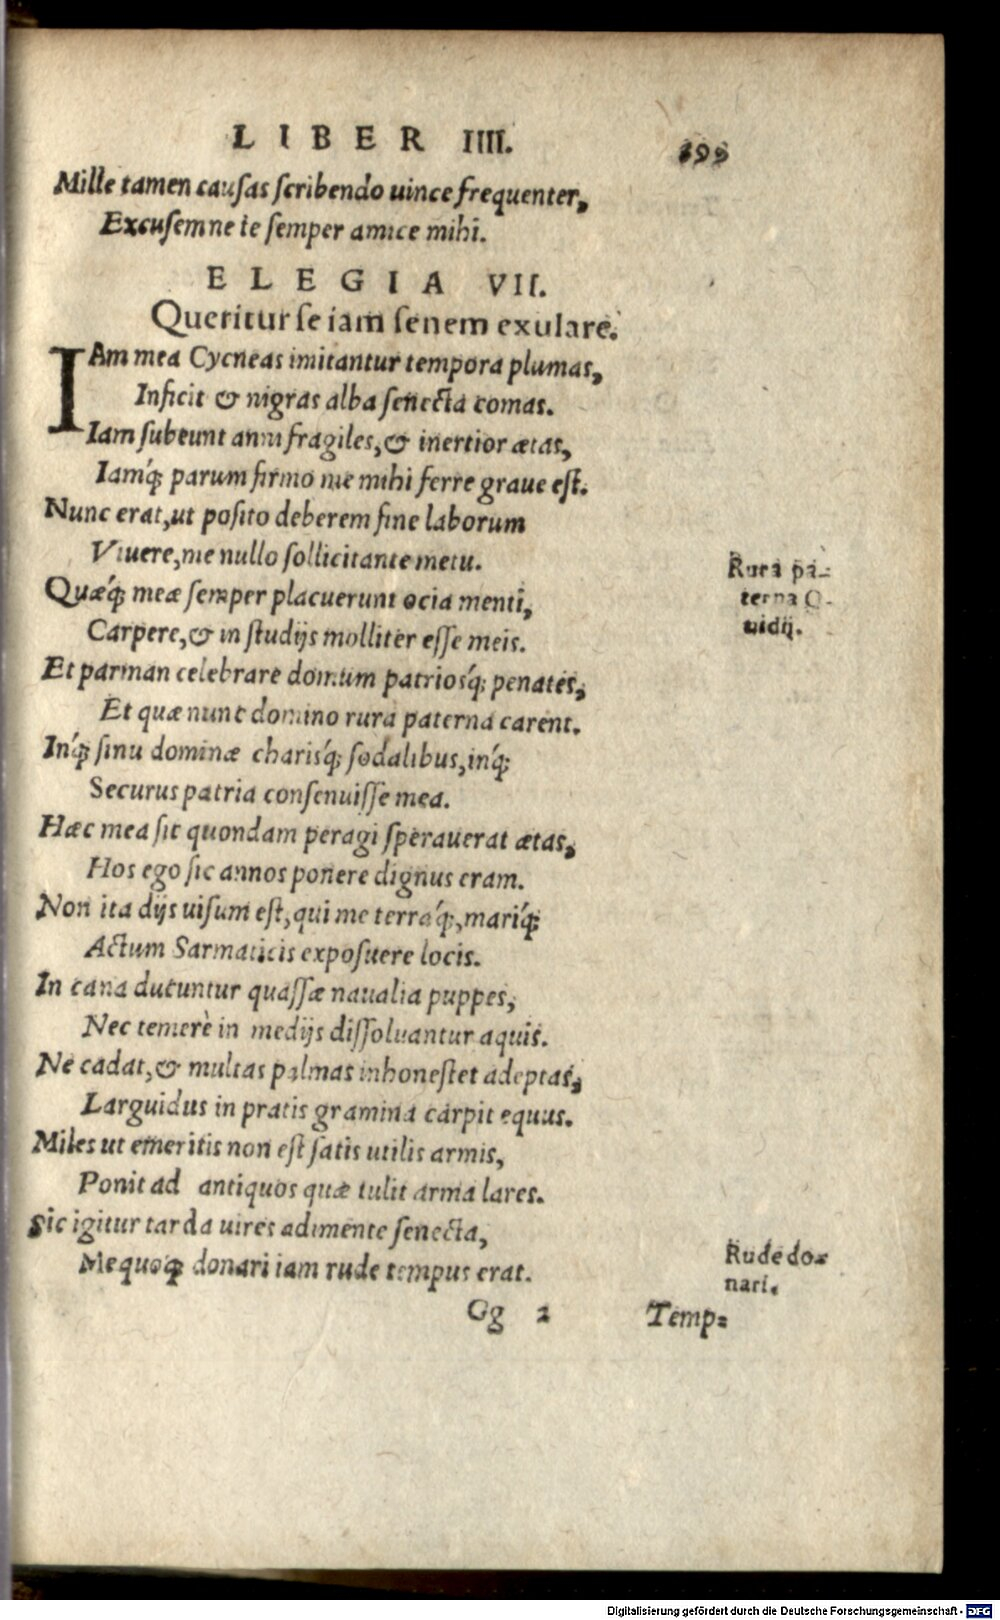 LIBER IIII. 199
Mille tamen causas scribendo uince frequenter,
Excusem ne te semper amice mihi.
ELEGIA VII.
Queritur se iam senem exulare.
IAm mea Cycneas imitantur tempora plumas,
Inficit & nigras alba senecta comas.
Iam subeunt anni fragiles, & inertior ætas,
Iamq́; parum firmo me mihi ferre graue est.
Nunc erat, ut posito deberem fine laborum
Viuere, me nullo sollicitante metu.
Quæq́; meæ semper placuerunt ocia menti,
Carpere, & in studijs molliter esse meis.
Et paruam celebrare domum patriosq́; penates,
Et quæ nunc domino rura paterna carent.
Inq́; sinu dominæ charisq́; sodalibus, inq́;
Securus patria consenuisse mea.
Hæc mea sic quondam peragi sperauerat ætas,
Hos ego sic annos ponere dignus eram.
Non ita dijs uisum est, qui me terraq́;, mariq́;
Actum Sarmaticis exposuere locis.
In caua ducuntur quassæ naualia puppes,
Nec temerè in medijs dissoluantur aquis.
Ne cadat, & multas palmas inhonestet adeptas,
Larguidus in pratis gramina carpit equus.
Miles ut emeritis non est satis utilis armis,
Ponit ad antiquos quæ tulit arma lares.
Sic igitur tarda uires adimente senecta,
Me quoq; donari iam rude tempus erat.
Gg 2 Temp=
Rura pa-
terna O-
uidij.
Rude do=
nari.
Digitalisierung gefördert durch die Deutsche Forschungsgemeinschaft - DFG